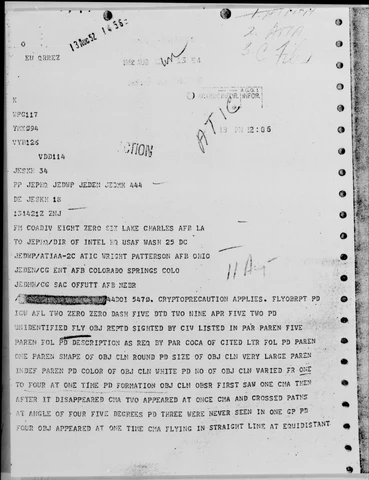 O
13 AUG 52 14 56
EU QRREZ
2. ATIA
3. C File
ATIC
12:06
ACTION
K
WPG117
YMX094
VYB126
VDD114
JESKH 34
PP JEPHQ JEDWP JEDEN JEDMH 444
DE JESKH 18
131421Z ZNJ
FM COADIV EIGHT ZERO SIX LAKE CHARLES AFB LA
TO JEPHQ/DIR OF INTEL HQ USAF WASH 25 DC
JEDWP/ATIAA-2C ATIC WRIGHT PATTERSON AFB OHIO
JEDEN/CG ENT AFB COLORADO SPRINGS COLO
11 Aug
JEDMH/CG SAC OFFUTT AFB NEBR
44DOI 5479. CRYPTOPRECAUTION APPLIES. FLYOBRPT PD
IOW AFL TWO ZERO ZERO DASH FIVE DTD TWO NINE APR FIVE TWO PD
UNIDENTIFIED FLY OBJ REPTD SIGHTED BY CIV LISTED IN PAR PAREN FIVE
PAREN FOL PD DESCRIPTION AS REQ BY PAR COCA OF CITED LTR FOL PD PAREN
ONE PAREN SHAPE OF OBJ CLN ROUND PD SIZE OF OBJ CLN VERY LARGE PAREN
INDEF PAREN PD COLOR OF OBJ CLN WHITE PD NO OF OBJ CLN VARIED FR ONE
TO FOUR AT ONE TIME PD FORMATION OBJ CLN OBSR FIRST SAW ONE CMA THEN
AFTER IT DISAPPEARED CMA TWO APPEARED AT ONCE CMA AND CROSSED PATHS
AT ANGLE OF FOUR FIVE DEGREES PD THREE WERE NEVER SEEN IN ONE GP PD
FOUR OBJ APPEARED AT ONE TIME CMA FLYING IN STRAIGHT LINE AT EQUIDISTANT